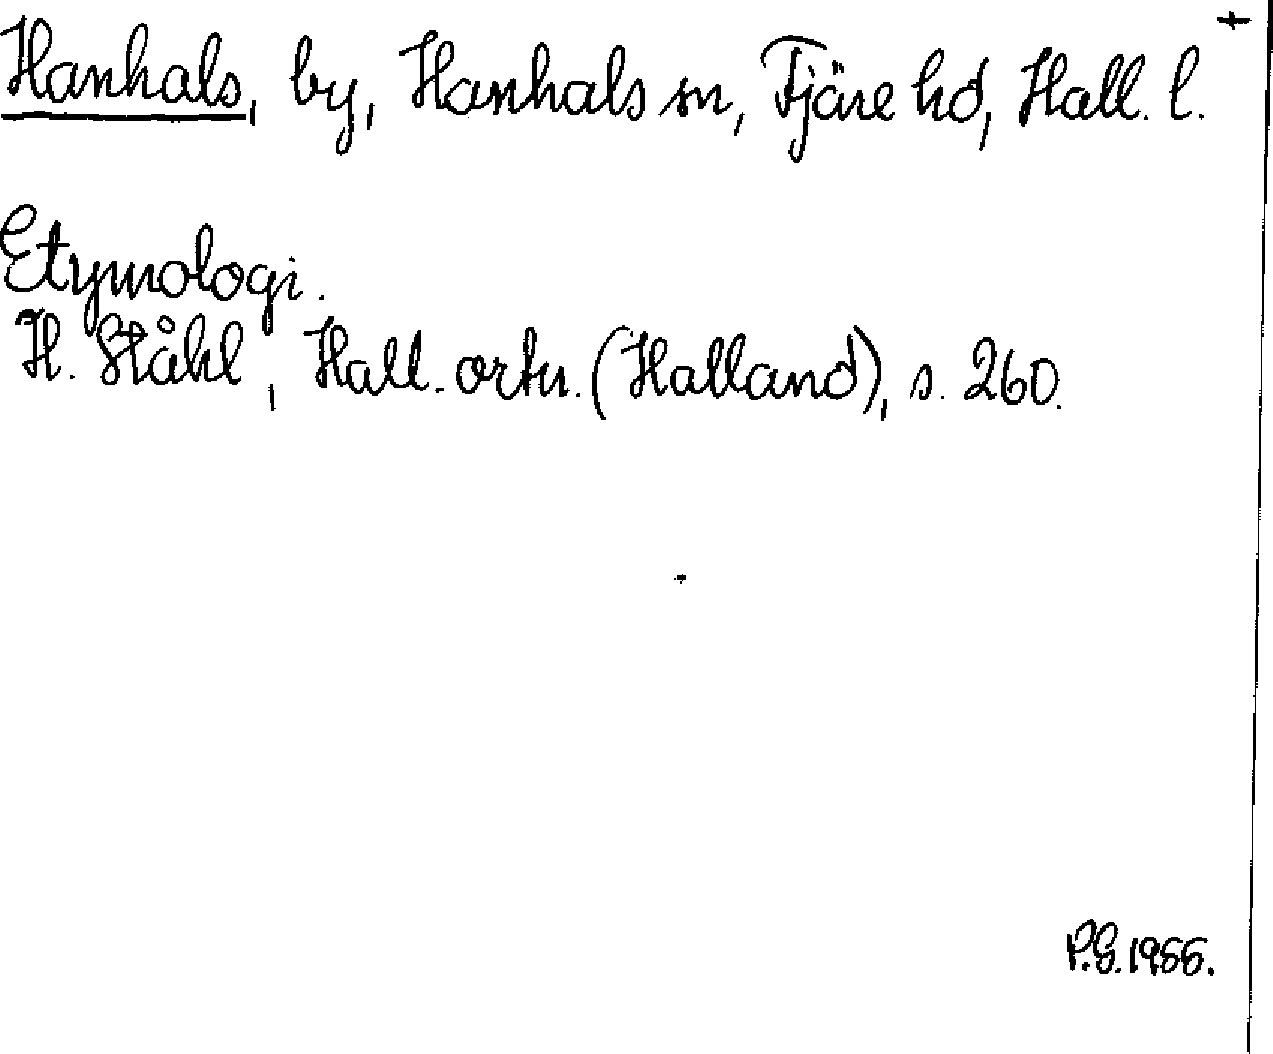 +
Hanhals, by, Hanhals sn, Fjäre hd, Hall. l.
Etymologi.
H. Ståhl, Hall. ortn. (Halland), s. 260.
P.G. 1955.